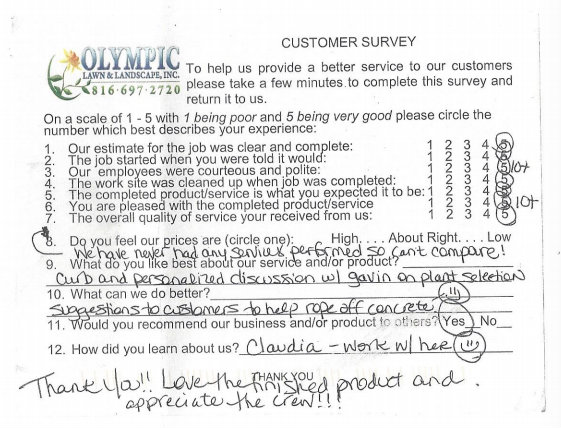 CUSTOMER SURVEY
OLYMPIC
LAWN & LANDSCAPE, INC.
816-697-2720
To help us provide a better service to our customers
please take a few minutes to complete this survey and
return it to us.
On a scale of 1 - 5 with 1 being poor and 5 being very good please circle the
number which best describes your experience:
1. Our estimate for the job was clear and complete: 1 2 3 4 5
2. The job started when you were told it would: 1 2 3 4 5
3. Our employees were courteous and polite: 1 2 3 4 5 10+
4. The work site was cleaned up when job was completed: 1 2 3 4 5
5. The completed product/service is what you expected it to be: 1 2 3 4 5
6. You are pleased with the completed product/service 1 2 3 4 5 10+
7. The overall quality of service your received from us: 1 2 3 4 5
8. Do you feel our prices are (circle one): High. . . . About Right. . . . Low
We have never had any services performed so can't compare!
9. What do you like best about our service and/or product?
Curb and personalized discussion w/ gavin on plant selection
10. What can we do better?
suggestions to customers to help rope off concrete
11. Would you recommend our business and/or product to others? Yes No
12. How did you learn about us? Claudia - work w/ her
THANK YOU
Thank Ya!! Love the finished product and
appreciate the crew!!!